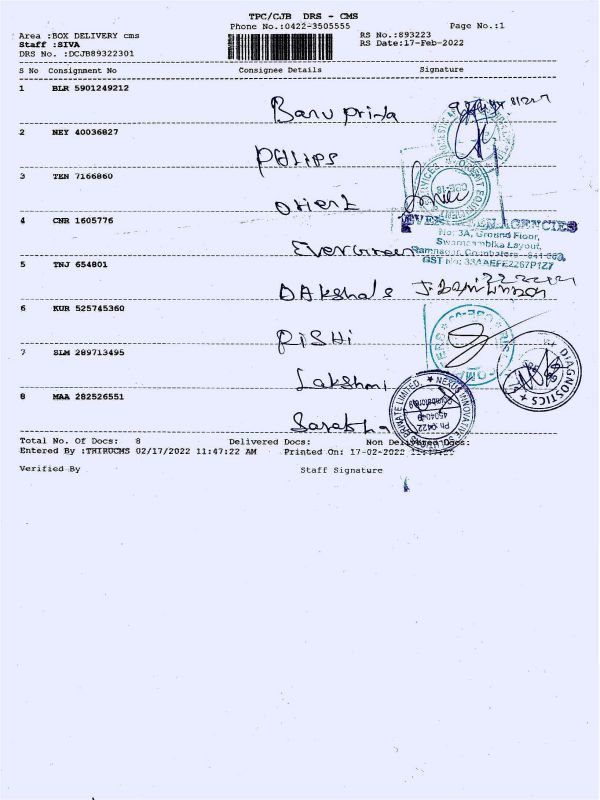 TPC/CJB DRS - CMS
Phone No.:0422-3505555
Page No.:1
Area :BOX DELIVERY cms
RS No.:893223
Staff :SIVA
RS Date:17-Feb-2022
DRS No. :DCJB89322301
S No Consignment No Consignee Details Signature
1 BLR 5901249212
Banu priya
2 NEY 40036827
PHLIPS
3 TEN 7166860
Orient
4 CNR 1605776
EVERGREEN AGENCIES
No: 3A, Ground Floor,
Swarnambika Layout,
Ramnagar, Coimbatore-
Evergreen
GST No: 33AAEFE2267P1Z7
5 TNJ 654801
DAkshals
6 KUR 525745360
RISHI
7 SLM 289713495
DIAGNOSTICS
Lakshmi
8 MAA 282526551
NEXUS INNOVATIVE
PRIVATE LIMITED
Ph:0422
Total No. Of Docs: 8 Delivered Docs: Non Delivered Docs:
Entered By :THIRUCMS 02/17/2022 11:47:22 AM Printed On: 17-02-2022 11:47:22
Verified By Staff Signature